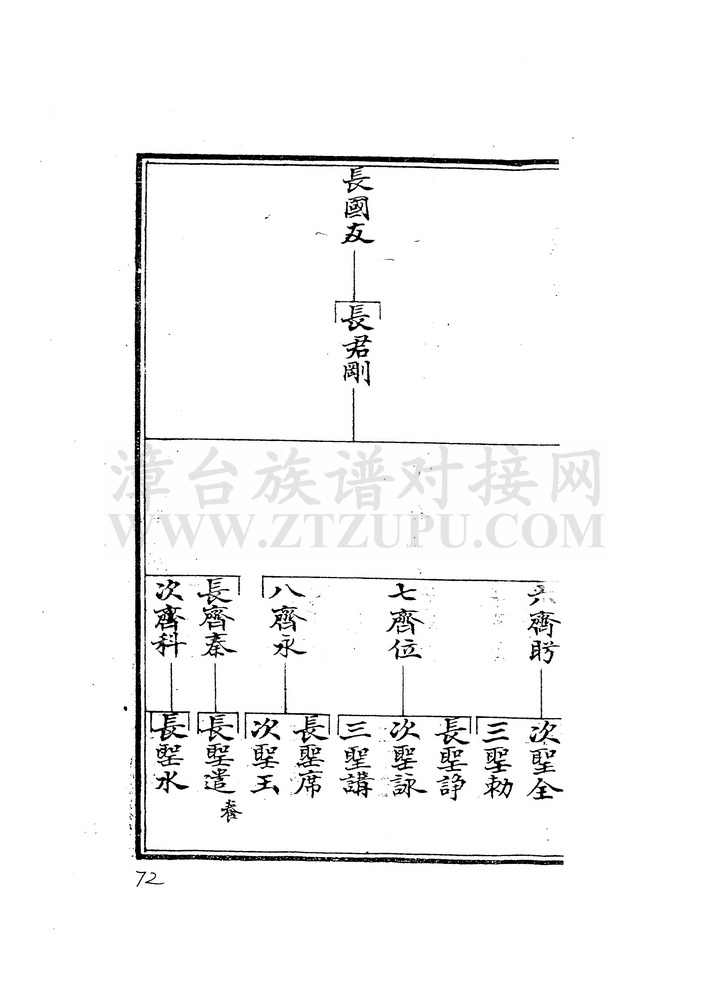 長國友
長君剛
六齊盼
七齊位
八齊永
長齊秦
次齊科
次聖全
三聖勅
長聖諍
次聖詠
三聖講
長聖席
次聖玉
長聖遣
養
長聖水
漳台族谱对接网
WWW.ZTZUPU.COM
72